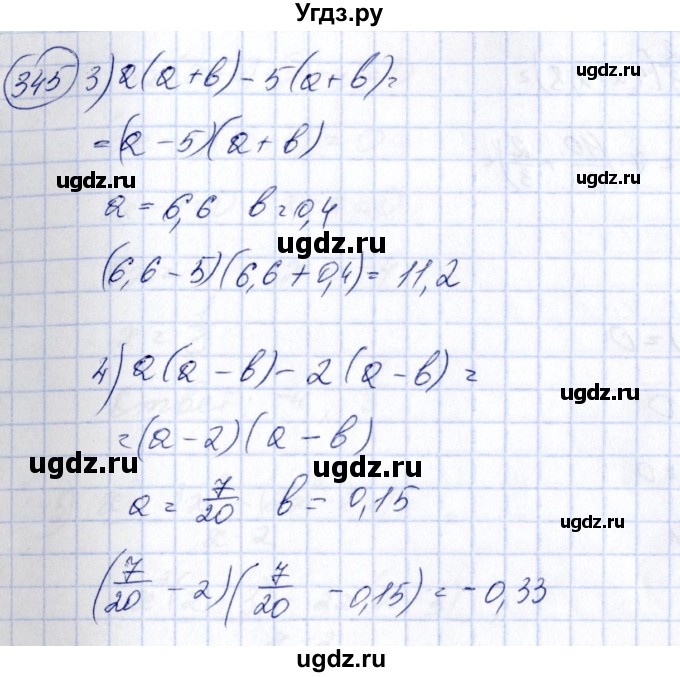 Угдз.ру
345 3) a(a+b)-5(a+b)=
=(a-5)(a+b)
a=6,6 b=0,4
(6,6-5)(6,6+0,4)=11,2
4) a(a-b)-2(a-b)=
=(a-2)(a-b)
a=7/20 b=0,15
(7/20-2)(7/20-0,15)=-0,33
ugdz.ru
ugdz.ru
ugdz.ru
ugdz.ru
ugdz.ru
ugdz.ru
ugdz.ru
ugdz.ru
ugdz.ru
ugdz.ru
ugdz.ru
ugdz.ru